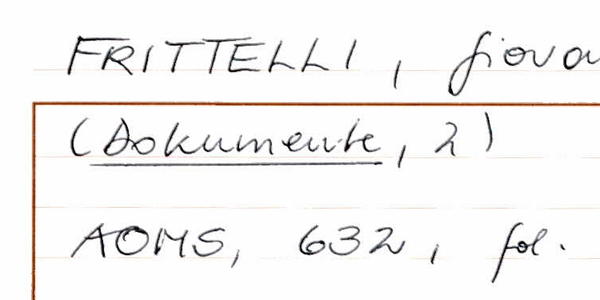 FRITTELLI, Giova
(Dokumente, 2)
AOMS, 632, fol.